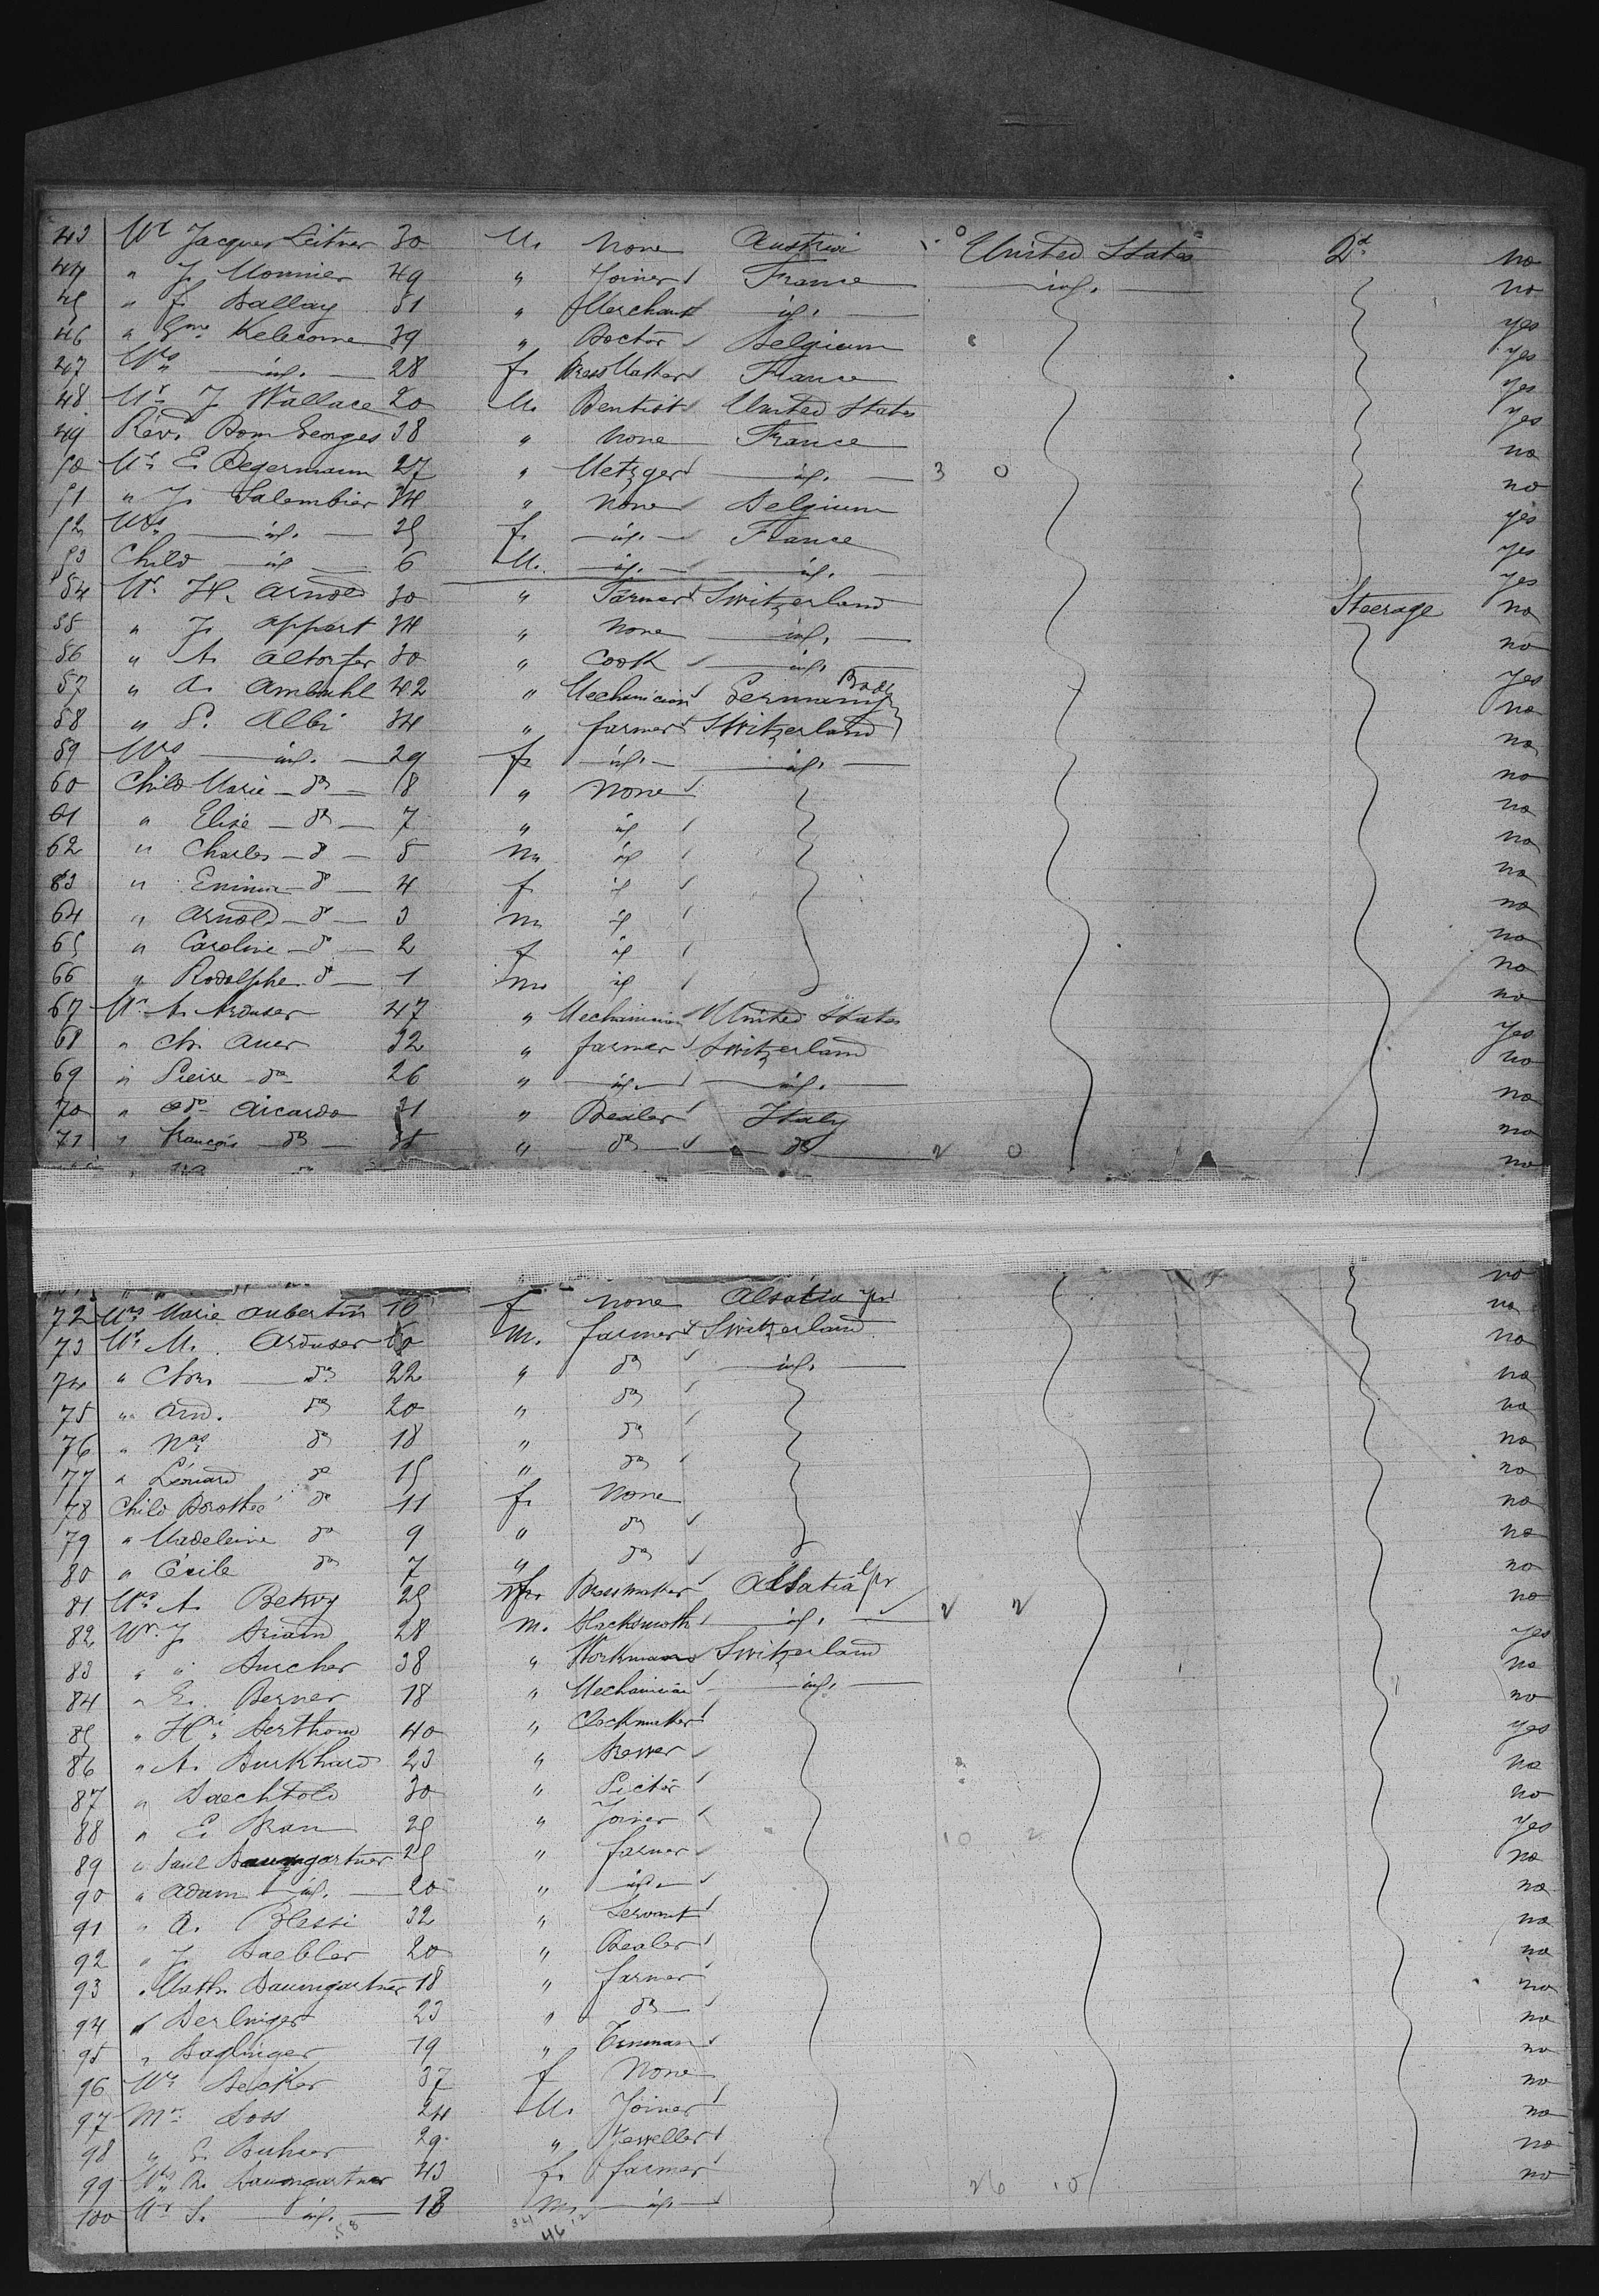 43 Mr Jacques Leitner 30 M. None Austria United States 2d no
44 " J. Monnier 49 " Joiner France id. no
45 " f. Ballay 51 " Merchant id. yes
46 " Kelecome 39 " Doctor Belgium yes
47 Mrs id. 28 f. DressMaker France yes
48 Mr J Wallace 20 M. Dentist United States yes
49 Revd Dom Georges 38 " None France no
50 Mr E. Degermann 27 " Metzger id. 3 0 no
51 " J. Salembier 34 " None Belgium yes
52 Mrs id. 25 f. id. France yes
53 Child id 6 M. id. id. yes
54 Mr H. Arnold 30 " Farmer Switzerland Steerage no
55 " J. Appert 34 " None id. no
56 " A. Altorfer 30 " Cook id. yes
57 " A. Ambuhl 42 " Mechanician Germany Bade no
58 " P. Albi 34 " farmer Switzerland no
59 Mrs id. 29 f. id. id. no
60 Child Marie do 8 " None no
61 " Elise do 7 " id no
62 " Charles do 5 m id no
63 " do 4 f id no
64 " Arnold do 3 m id no
65 " Caroline do 2 f id no
66 " Rodolphe do 1 m id no
67 Mr A. Arduser 47 " Mechanician United States yes
68 " Ch. Auer 32 " farmer Switzerland no
69 " Pierre do 26 " id id. no
70 " Aicardo 31 " Dealer Italy no
71 " François do 35 " do do 2 0 no
72 Mrs Marie Aubertin 16 f none Alsatia no
73 Mr M. Arduser 60 m. farmer Switzerland no
74 " Chr. do 22 " do id. no
75 " And. do 20 " do no
76 " Nas do 18 " do no
77 " Léonard do 15 " do no
78 Child Dorothée do 11 f. None no
79 " Madeleine do 9 " do no
80 " Cécile do 7 " do no
81 Mrs A. 25 f. Dressmaker Alsatia no
82 Mr J. Briand 28 m. Blacksmith id. 2 2 yes
83 " " Burcher 38 " Workman Switzerland no
84 " E. Berner 18 " Mechanician id. no
85 " Hri Berthoud 40 " Clockmaker yes
86 " A. Burkhard 23 " Brewer no
87 " Baechtold 30 " Pictor no
88 " E. Bran 25 " Joiner 10 2 yes
89 " Paul Baumgartner 25 " farmer no
90 " Adam id. 20 " id. no
91 " A. Blessi 32 " Servant no
92 " J. Baebler 20 " Dealer no
93 " Math. Baumgartner 18 " farmer no
94 " Berlinger 23 " do no
95 " Baglinger 19 " Tinman no
96 Mrs Becker 37 f None no
97 Mr Boss 24 M. Joiner no
98 " E. Buhrer 29 " Jeweller no
99 Mrs R. Baumgartner 43 f. farmer no
100 Mr S. id. 18 m. id. 26 10
58 34 12
46